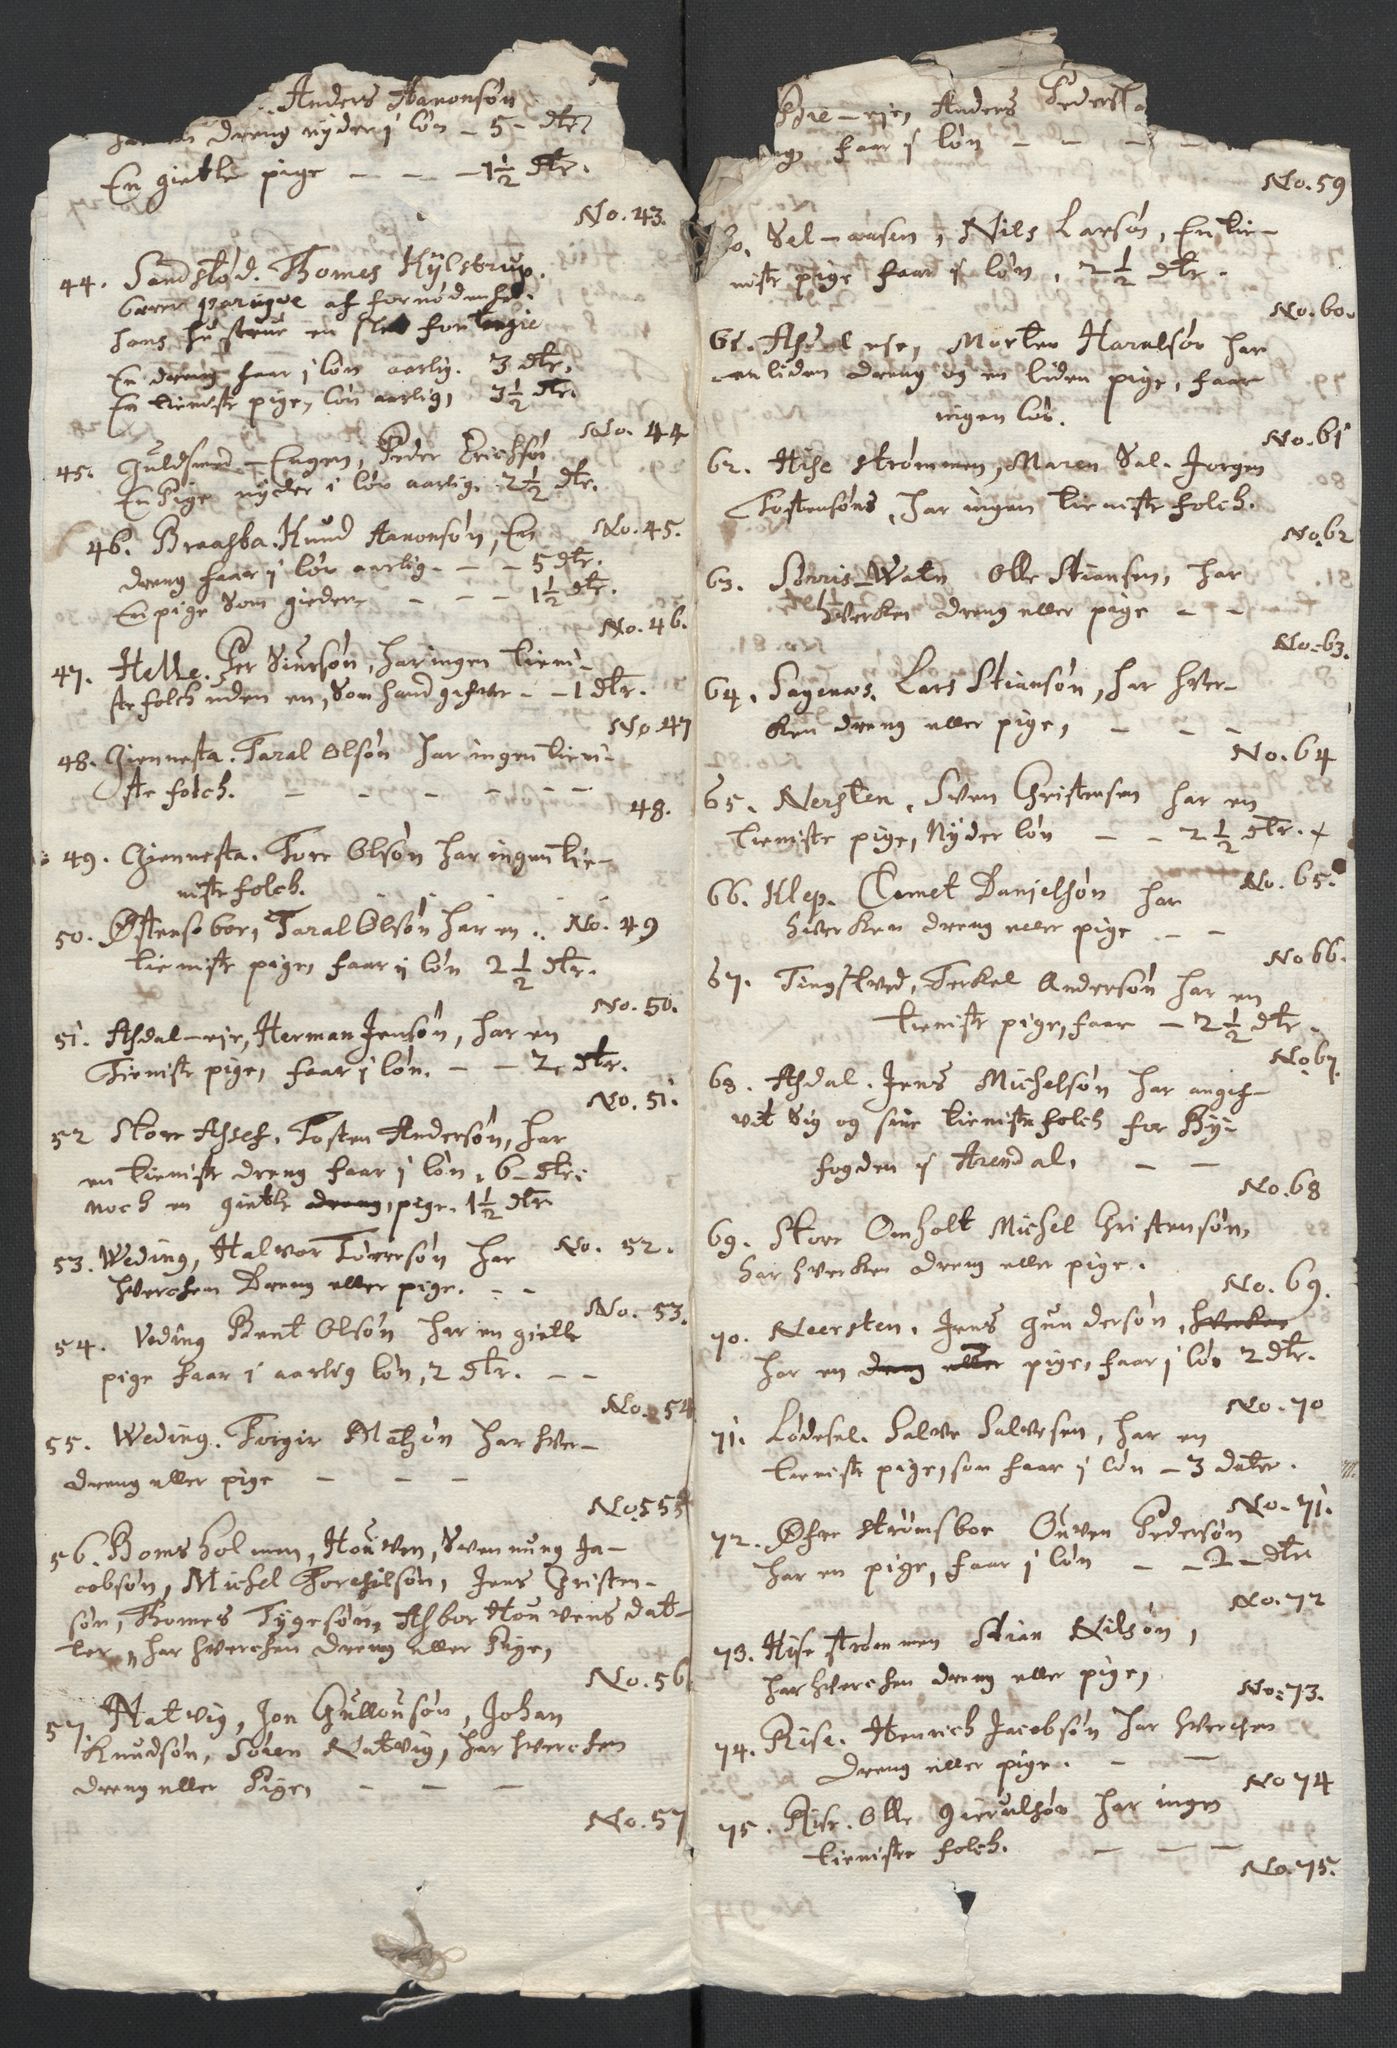 Anders Aanonsøn
dreng nyder i løn – 5 – dlr
En gietle pige – – – 1½ dlr.
No. 43.
44. Sandstød. Thomes Kylstrup.
bærer paruque af fornødenhed.
hans hustrue en slet fontagie
En dreng faar i løn aarlig. 3 dlr.
En tieniste pige, løn aarlig, 3½ dlr.
No. 44
45. Guldsmed – Engen, Peder Erichsøn
En Pige nyder i løn aarlig. 2½ dlr.
No. 45.
46. Braasba. Knud Aanonsøn, En
dreng faar i løn aarlig. – – 5 dlr.
En pige Som gieder – – – 1½ dlr.
No. 46.
47. Helle. Per Siursøn, har ingen tieni-
ste folch uden en, Som hand gifver – – 1 dlr.
No 47
48. Giennesta. Taral Olsøn har ingen tieni-
ste folch. – – – – – –
48.
49. Giennesta. Tore Olsøn har ingen tie-
niste folch.
No. 49
50. Østensboe, Taral Olsøn har en
tieniste pige, faar i løn 2½ dlr.
No. 50.
51. Asdal – eie, Herman Jensøn, har en
Tieniste pige, faar i løn. – – 2 dlr.
No. 51.
52 Store Assef, Tosten Andersøn, har
en tieniste dreng faar i løn, 6 – dlr.
noch en gietle dreng, pige. 1½ dlr.
No. 52.
53. Weding, Halvor Torersøn har
hverchen Dreng eller pige. – –
No. 53.
54. Veding Bent Olsøn har en gietle
pige faar i aarlig løn, 2 dlr. – –
No. 54
55. Weding. Torgir Matzøn har hver-
dreng eller pige – – –
No. 55
56. Bomsholmen, Houven, Svennung Ja-
cobsøn, Michel Torchilsøn, Jens Christen-
søn, Thomes Tygesøn, Asbor Houvens dat-
ter, har hverchen dreng eller Pige,
No. 56
57. Natvig, Jon Gullousøn, Johan
Knudsøn, Søren Natvig, har hverchen
dreng eller Pige, – – –
No. 57
eie, Anders Peders
faar i løn – – – –
No. 59
Sel – aasen, Nils Larsøn, En tie-
niste pige faar i løn, 2½ dlr.
No. 60.
61. Morten Haralsøn har
en liden dreng og en liden pige, faar
ingen løn.
No. 61
62. Hise strømmen, Maren Sal. Jørgen
Tostensøns, har ingen tieniste folch.
No. 62
63. Watn Olle Stiansen, har
hverken dreng eller pige – –
No. 63.
64. Sagenæs. Lars Stiansøn, har hver-
ken dreng eller pige, – – –
No. 64
65. Nersten. Sven Christensen har en
tieniste pige, Nyder løn – – 2½ dlr.
No. 65.
66. Klep. Comet Danielsøn har
hverken dreng eller pige – –
No 66.
67. Tingstved, Terkel Andersøn har en
tieniste pige, faar – 2½ dlr.
No. 67.
68. Asdal. Jens Michelsøn har angif-
vet Sig og sine tieniste folch for By-
fogden i Arendal, – –
No. 68
69. Store Omholt Michel Christensøn
har hverken dreng eller pige.
No. 69.
70. Neersten, Jens Gundersøn, hverken
har en dreng eller pige, faar i løn 2 dlr.
No. 70
71. Lødesøl. Salve Salvesen, har en
tieniste pige, som faar i løn – 3 daler.
No. 71.
72. Øfre strømsboe Ouven Pedersøn
har en pige, faar i løn – – 2 – dlr
No. 72
73. Hise strømmen Stian Nilsøn,
har hverchen dreng eller pige,
No. 73.
74. Rise. Henrich Jacobsøn har hverchen
dreng eller pige. – –
No 74
75. Rise. Olle Gierulsøn har ingen
tieniste folch. – – –
No. 75.